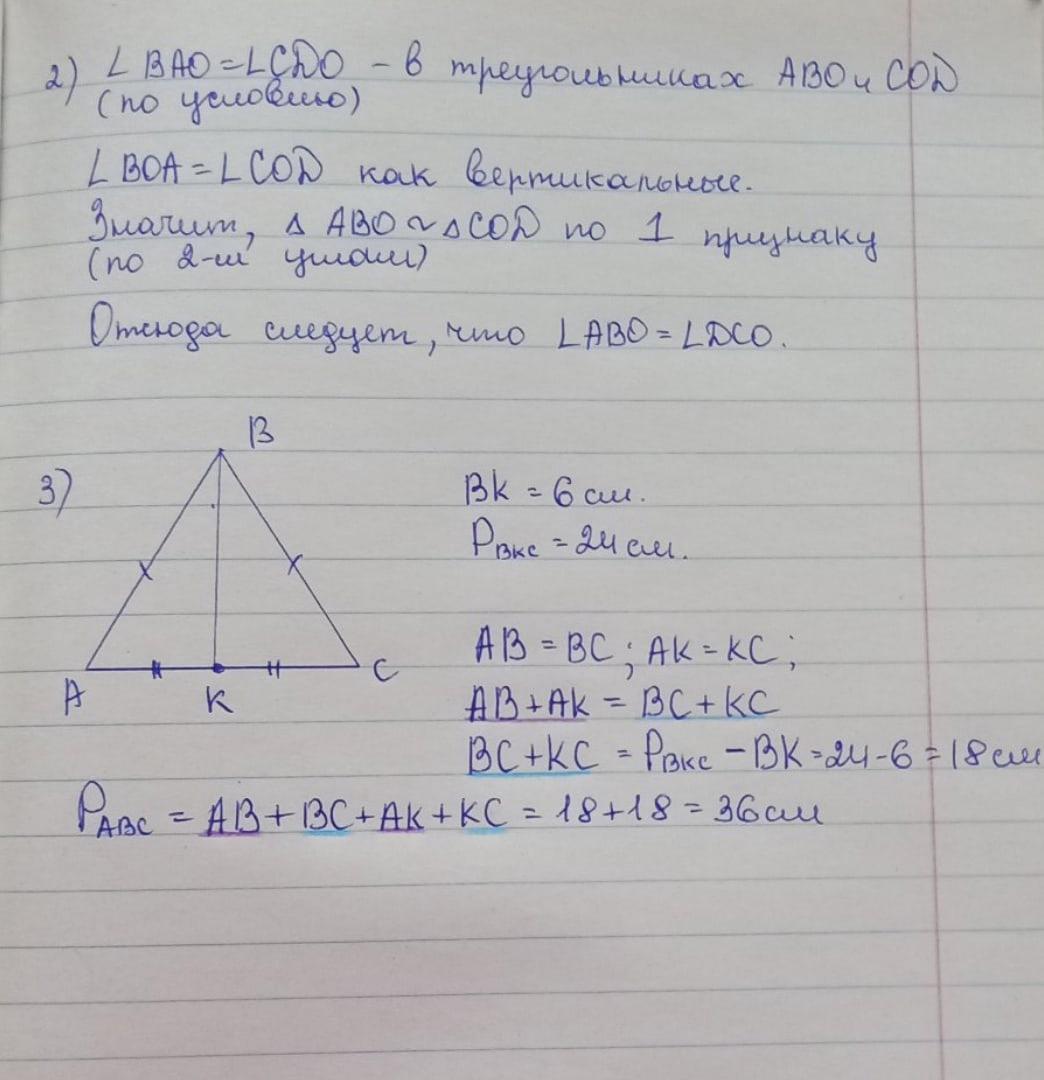 2) ∠BAO = ∠CDO – в треугольниках ABO и COD
(по условию)
∠BOA = ∠COD как вертикальные.
Значит, △ABO ~ △COD по 1 признаку
(по 2-м углам)
Отсюда следует, что ∠ABO = ∠DCO.
B
3)
BK = 6 см.
P BKC = 24 см.
AB = BC; AK = KC;
A K C
AB + AK = BC + KC
BC + KC = P BKC – BK = 24 - 6 = 18 см
P ABC = AB + BC + AK + KC = 18 + 18 = 36 см